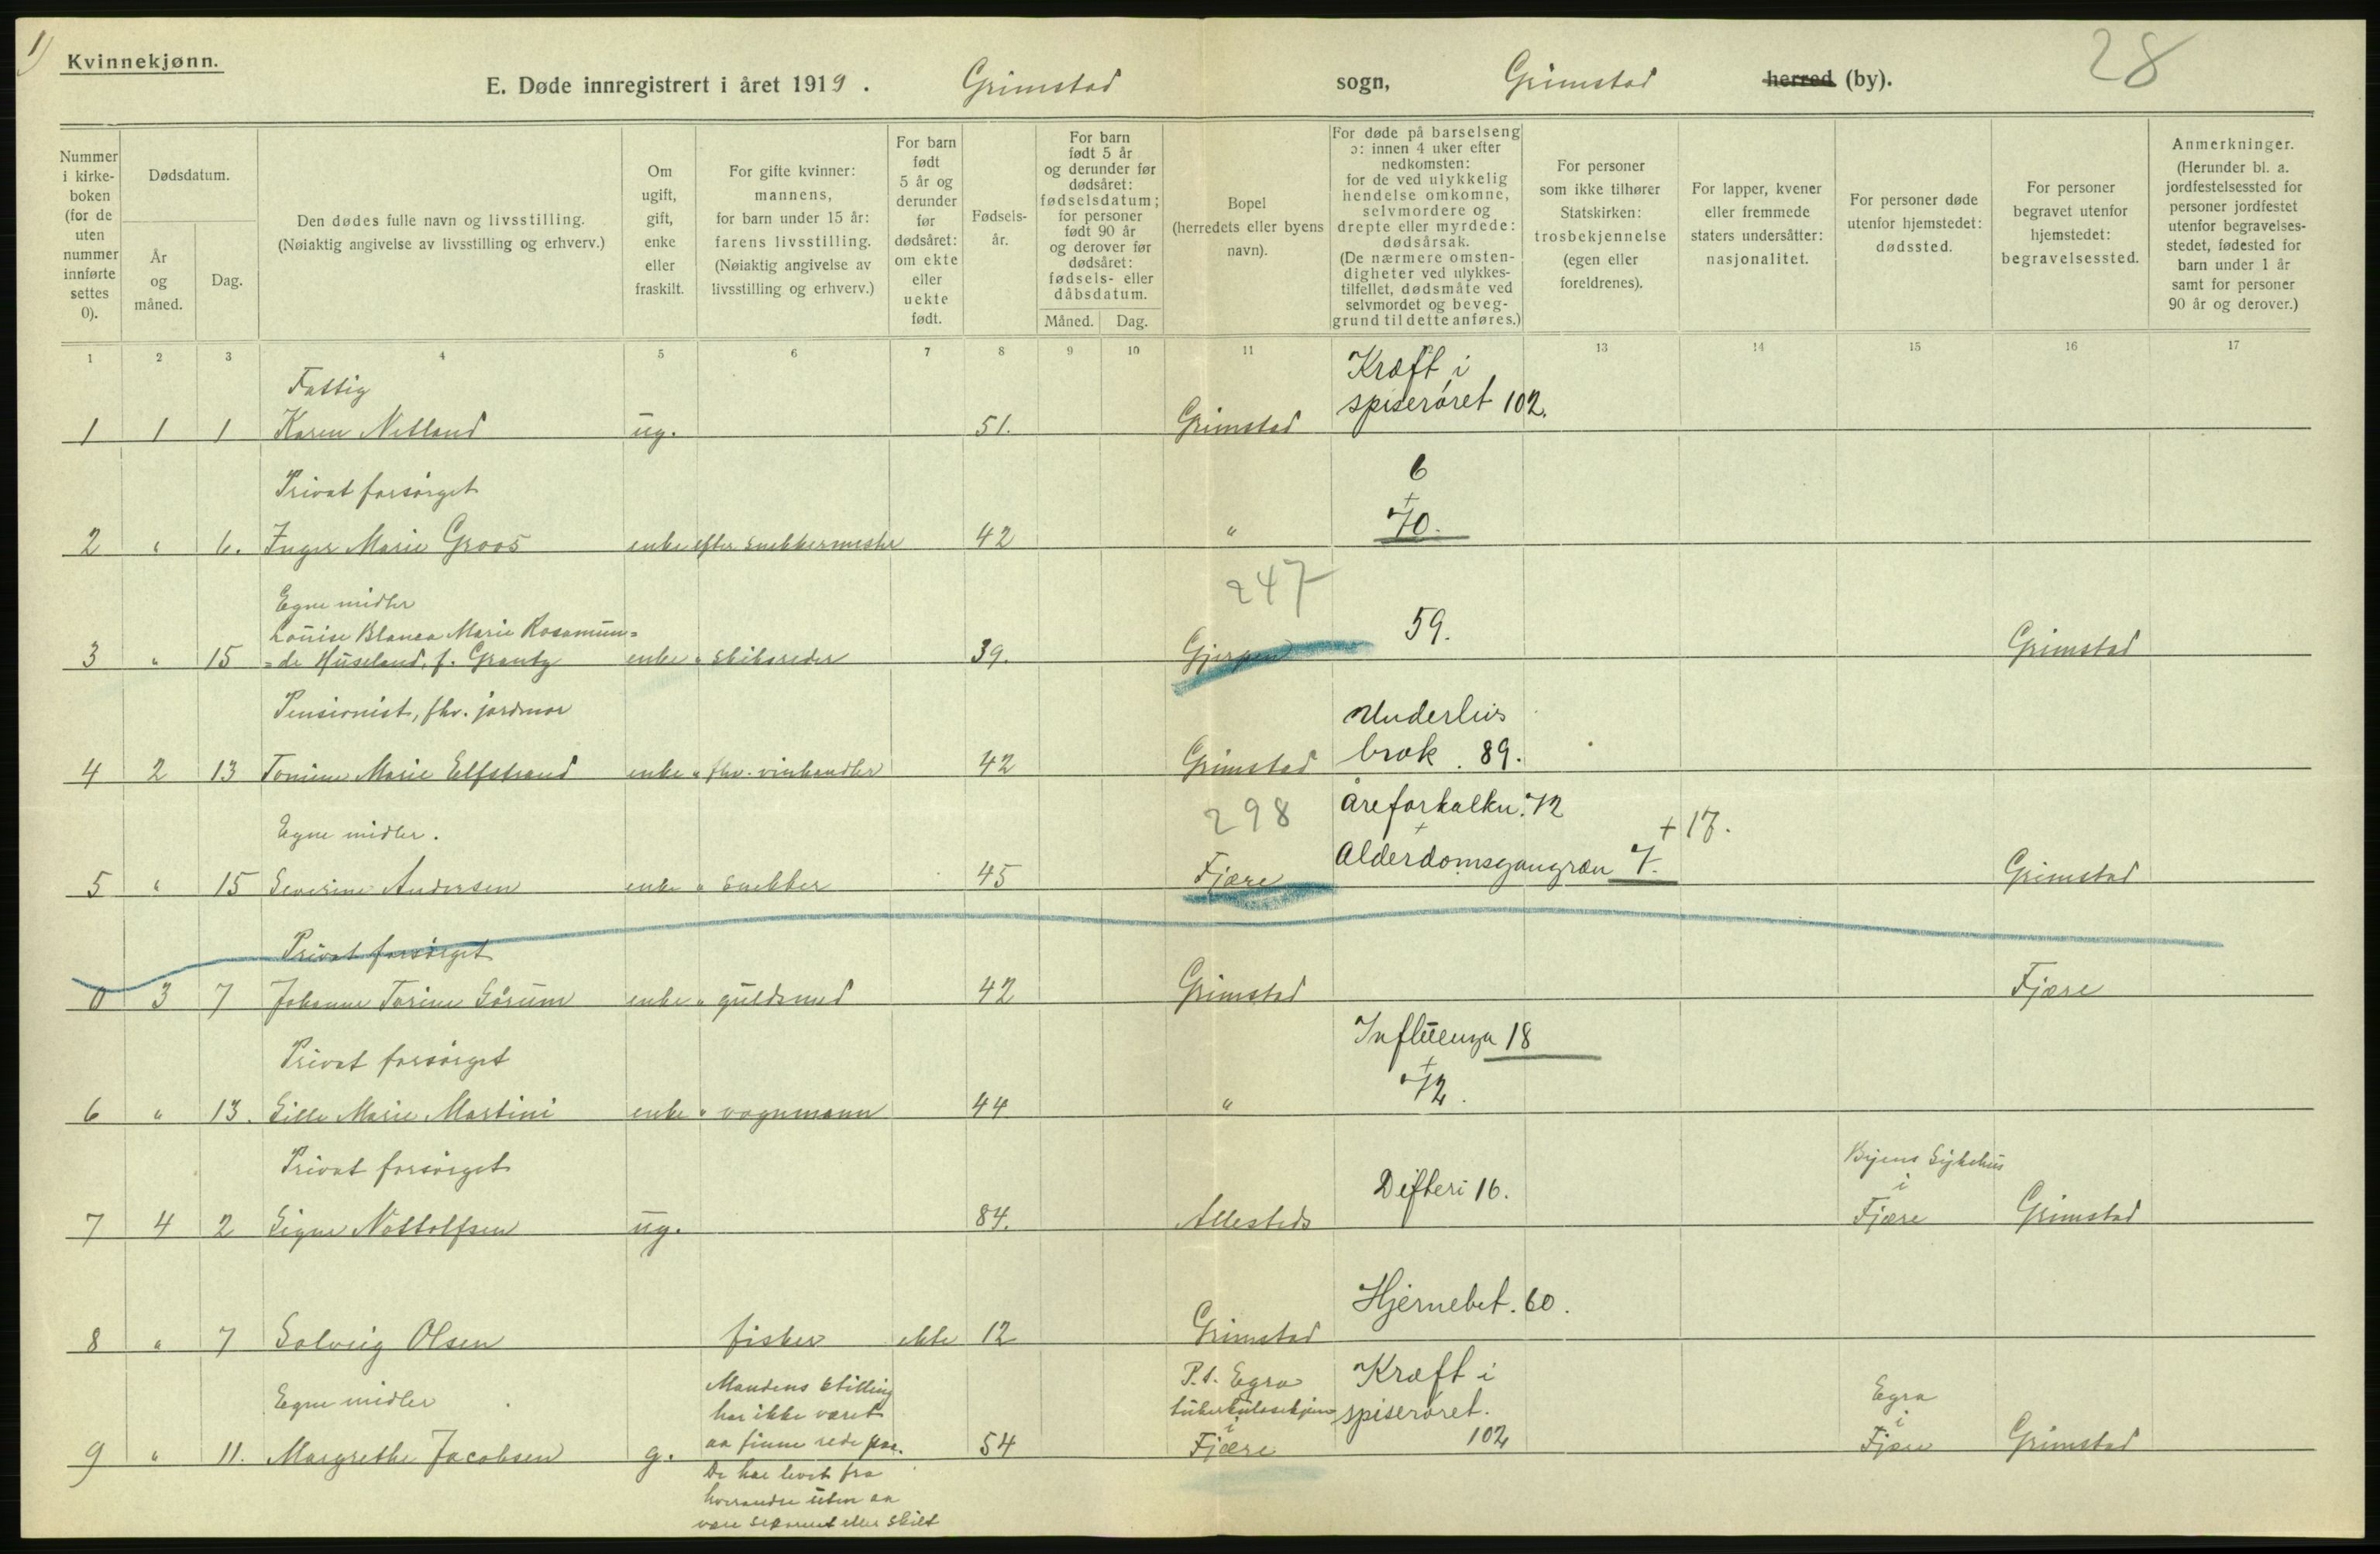 1)
Kvinnekjønn.
28
E. Døde innregistrert i året 1919. Grimstad sogn, Grimstad herred (by).
Nummer i kirke-boken (for de uten nummer innførte settes 0).
Dødsdatum.
År og måned.
Dag.
Den dødes fulle navn og livsstilling. (Nøiaktig angivelse av livsstilling og erhverv.)
Om ugift, gift, enke eller fraskilt.
For gifte kvinner: mannens, for barn under 15 år: farens livsstilling. (Nøiaktig angivelse av livsstilling og erhverv.)
For barn født 5 år og derunder før dødsåret: om ekte eller uekte født.
Fødsels-år.
For barn født 5 år og derunder før dødsåret: fødselsdatum; for personer født 90 år og derover før dødsåret: fødsels- eller dåbsdatum.
Måned. Dag.
Bopel (herredets eller byens navn).
For døde på barselseng ɔ: innen 4 uker efter nedkomsten: for de ved ulykkelig hendelse omkomne, selvmordere og drepte eller myrdede: dødsårsak. (De nærmere omsten-digheter ved ulykkes-tilfellet, dødsmåte ved selvmordet og beveg-grund til dette anføres.)
For personer som ikke tilhører Statskirken: trosbekjennelse (egen eller foreldrenes).
For lapper, kvener eller fremmede staters undersåtter: nasjonalitet.
For personer døde utenfor hjemstedet: dødssted.
For personer begravet utenfor hjemstedet: begravelsessted.
Anmerkninger. (Herunder bl. a. jordfestelsessted for personer jordfestet utenfor begravelses-stedet, fødested for barn under 1 år samt for personer 90 år og derover.)
1 2 3 4 5 6 7 8 9 10 11 12 13 14 15 16 17
Fattig Kræft i
spiserøret 102.
1 1 1 Karen Netland ug. 51. Grimstad
Privat forsørget 6
+
70.
2 " 6. Inger Marie Groos enke efter snekkermester 42 "
247
Egne midler 59.
Louise Blanca Marie Rosamun=
3 " 15 =de Huseland, f. Grantz enke " skibsreder 39. Gjerpen Grimstad
Pensionist, fhv. jordmor Underlivs
brok. 89.
4 2 13 Tomine Marie Elfstrand enke " fhv. vinhandler 42 Grimstad
298 Åreforkalkn. 72
Egne midler. + + 17.
Alderdomsgangræn 7.
5 " 15 Severine Andersen enke " snekker 45 Fjære Grimstad
Privat forsørget
0 3 7 Johanne Torine Sørum enke " guldsmed 42 Grimstad Fjære
Privat forsørget Influenza 18
+
72.
6 " 13. Sille Marie Martini enke " vognmann 44 "
Privat forsørget Difteri 16. Byens Sykehus
i
7 4 2 Signe Nottolfsen ug. 84. Allesteds Fjære Grimstad
Hjernebet. 60.
8 " 7 Solveig Olsen fisker ekte 12 Grimstad
Mandens stilling P.t. Egra Kræft i
Egne midler har ikke været spiserøret. Egra
aa finne rede paa. i 102 i
9 " 11. Margrethe Jacobsen g. 54 Fjære Fjære Grimstad
De har levet fra
hverandre uten aa
være separeret eller skilt